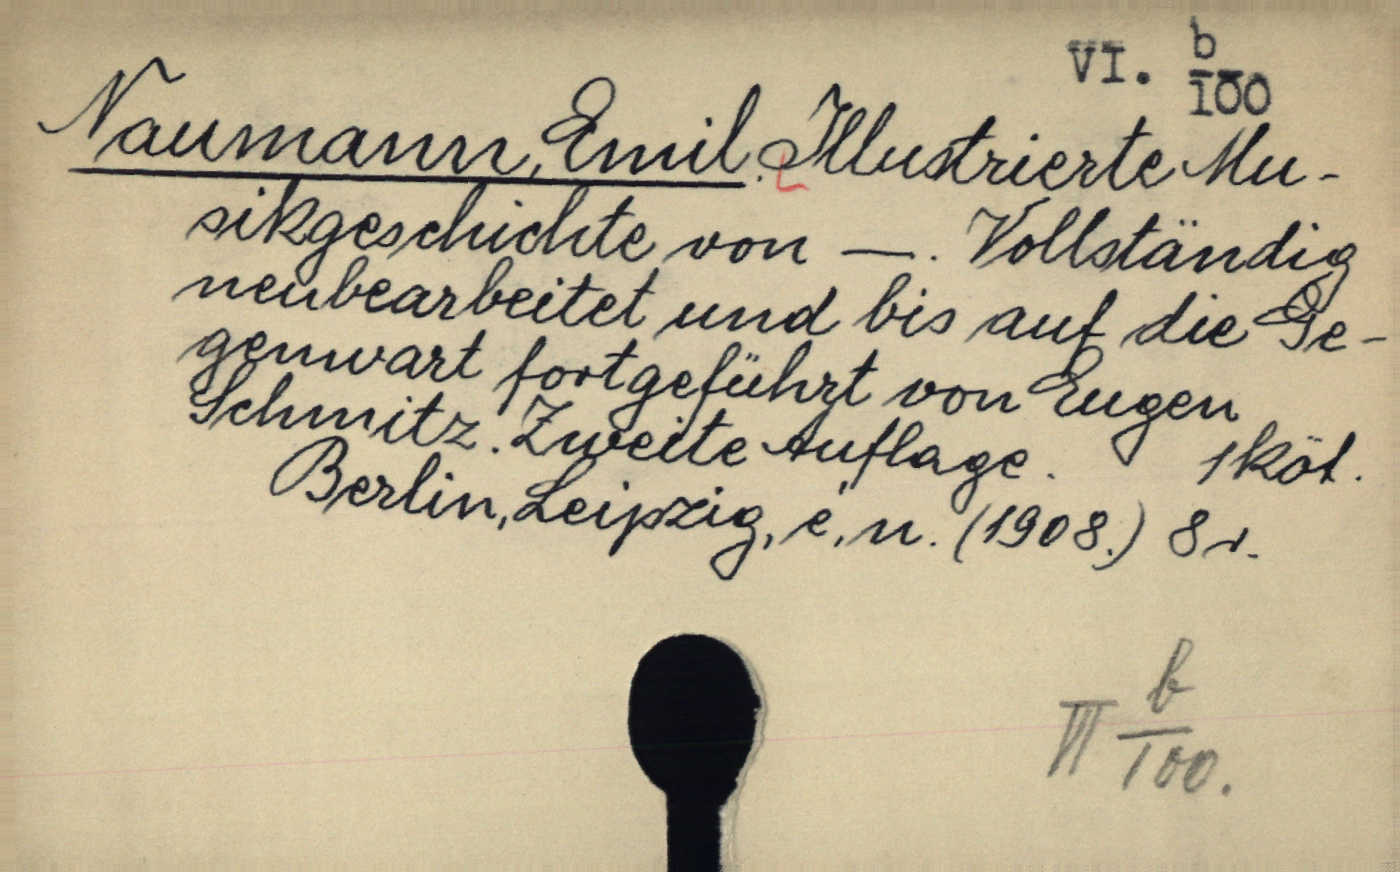 VI. b/100
Naumann, Emil. Illustrierte Mu-
sikgeschichte von —. Vollständig
neubearbeitet und bis auf die Ge-
genwart fortgeführt von Eugen
Schmitz. Zweite Auflage. 1 köt.
Berlin, Leipzig, é, n. (1908.) 8 r.
VI b/100.